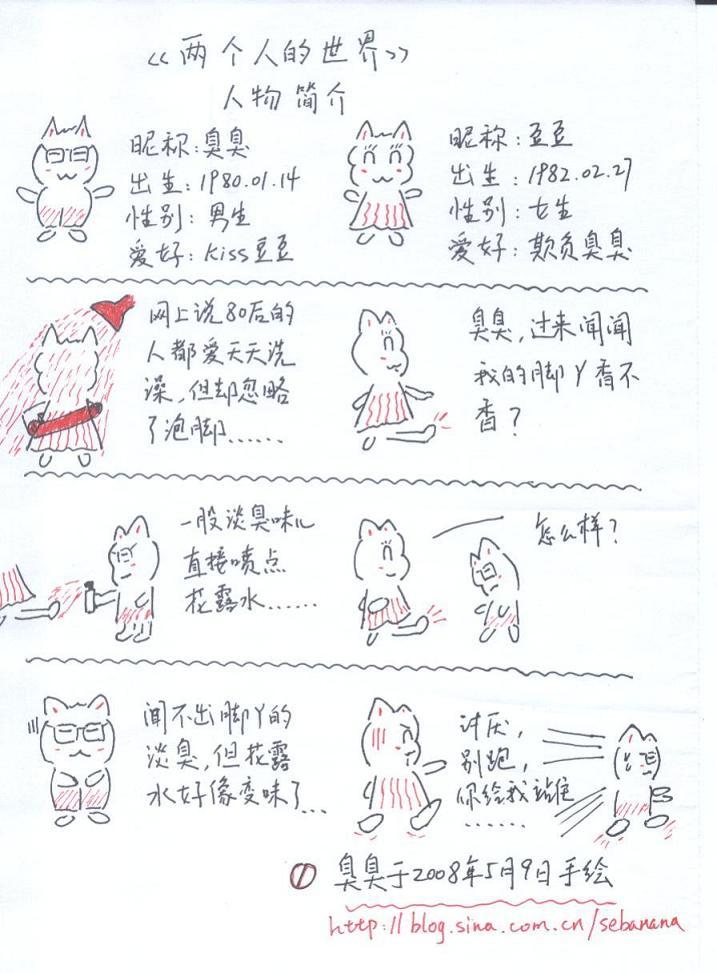 《两个人的世界》
人物简介
昵称：臭臭
出生：1980.01.14
性别：男生
爱好：Kiss豆豆
昵称：豆豆
出生：1982.02.27
性别：女生
爱好：欺负臭臭
网上说80后的
人都爱天天洗
澡，但却忽略
了泡脚……
臭臭，过来闻闻
我的脚丫香不
香？
一股淡臭味儿
直接喷点
花露水……
怎么样？
闻不出脚丫的
淡臭，但花露
水好像变味了…
讨厌，
别跑，
你给我站住
……
① 臭臭于2008年5月9日手绘
http://blog.sina.com.cn/sebanana